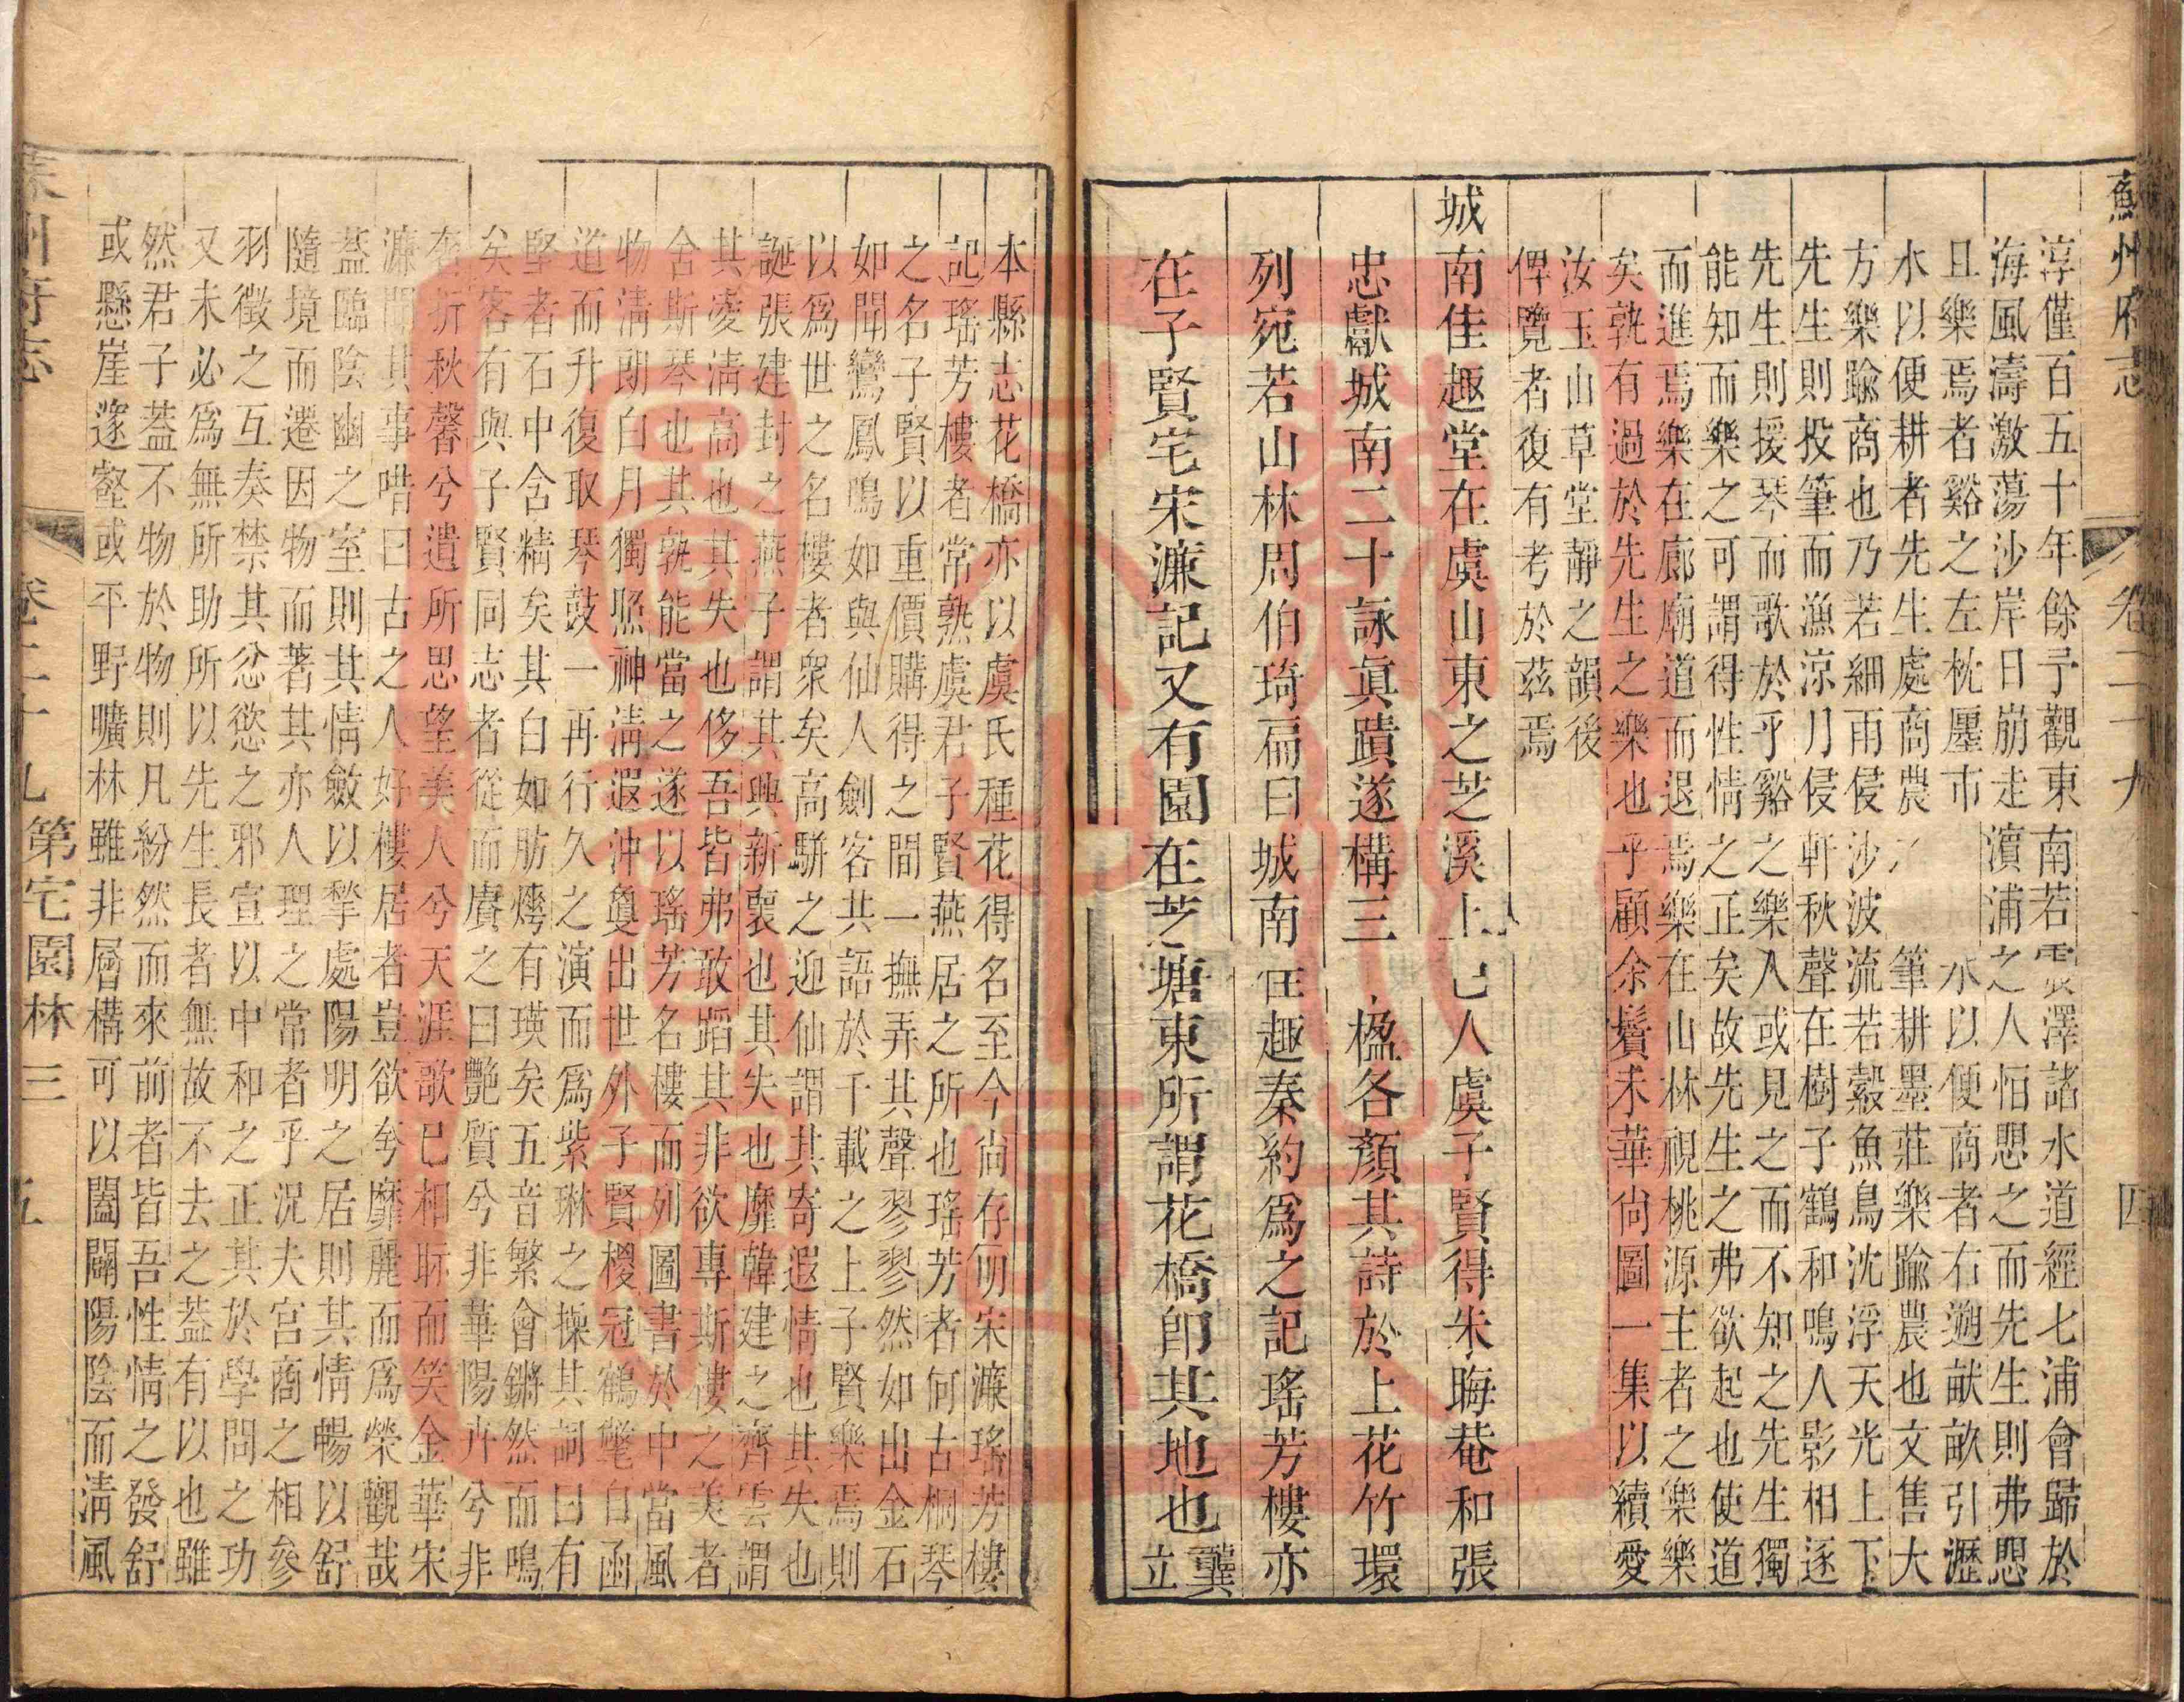 蘇州府志 卷二十九 四
淳僅百五十年餘予觀東南若震澤諸水道經七浦會歸於
海風濤激蕩沙岸日崩走濱浦之人怕思之而先生則弗思
且樂焉者谿之左枕廛市 水以便商者右遡畎畝引瀝
水以便耕者先生處商農 筆耕墨莊樂踰農也文售大
方樂踰商也乃若細雨侵沙波流若縠魚鳥沈浮天光上下
先生則投筆而漁涼月侵軒秋聲在樹子鶴和鳴人影相逐
先生則援琴而歌於乎谿之樂人或見之而不知之先生獨
能知而樂之可謂得性情之正矣故先生之弗欲起也使道
而進焉樂在廊廟道而退焉樂在山林視桃源主者之樂樂
矣孰有過於先生之樂也乎顧余鬢未華尙圖一集以續愛
汝玉山草堂靜之韻後
俾覽者復有考於茲焉
城南佳趣堂在虞山東之芝溪上 人虞子賢得朱晦菴和張
忠獻城南二十詠眞蹟遂構三楹各顏其詩於上花竹環
列宛若山林周伯琦扁曰城南佳趣秦約爲之記瑤芳樓亦
在子賢宅宋濂記又有園在芝塘東所謂花橋卽其地也龔
立
本縣志花橋亦以虞氏種花得名至今尙存明宋濂瑤芳樓
記瑤芳樓者常熟虞君子賢燕居之所也瑤芳者何古桐琴
之名子賢以重價購得之間一撫弄其聲翏翏然如出金石
如聞鸞鳳鳴如與仙人劍客共語於千載之上子賢樂焉則
以爲世之名樓者衆矣高騈之迎仙謂其寄遐情也其失也
誕張建封之燕子謂其興新褱也其失也靡韓建之齊雲謂
其凌淸高也其失也侈吾皆弗敢蹈其非欲專斯樓之美者
舍斯琴也其孰能當之遂以瑤芳名樓而列圖書於中當風
物淸朗白月獨照神淸遐沖敻出世外子賢櫻冠鶴氅白函
道而升復取琴鼓一再行久之演而爲紫琳之操其詞曰有
堅者石中含精矣其白如肪煒有瑛矣五音繁會鏘然而鳴
矣客有與子賢同志者從而賡之曰艷質兮非華陽卉兮非
春折秋馨兮遺所思望美人兮天涯歌已相眎而笑金華宋
濂聞其事唶曰古之人好樓居者豈欲夸靡麗而爲榮觀哉
蓋臨陰幽之室則其情斂以摯處陽明之居則其情暢以舒
隨境而遷因物而著其亦人理之常者乎況夫宮商之相參
羽徵之互奏禁其忿慾之邪宣以中和之正其於學問之功
又未必爲無所助所以先生長者無故不去之蓋有以也雖
然君子蓋不物於物則凡紛然而來前者皆吾性情之發舒
或懸崖邃壑或平野曠林雖非層構可以闔闢陽陰而淸風
蘇州府志 卷二十九 第宅園林三 五